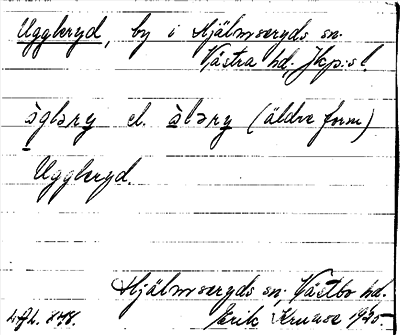 Uggleryd, by i Hjälmseryds sn.
Västra hd, Jkp:s l.
ùgləry el. àləry (äldre form)
Uggleryd.
Hjälmseryds sn, Västbo hd.
Erik Kruuse 1920.